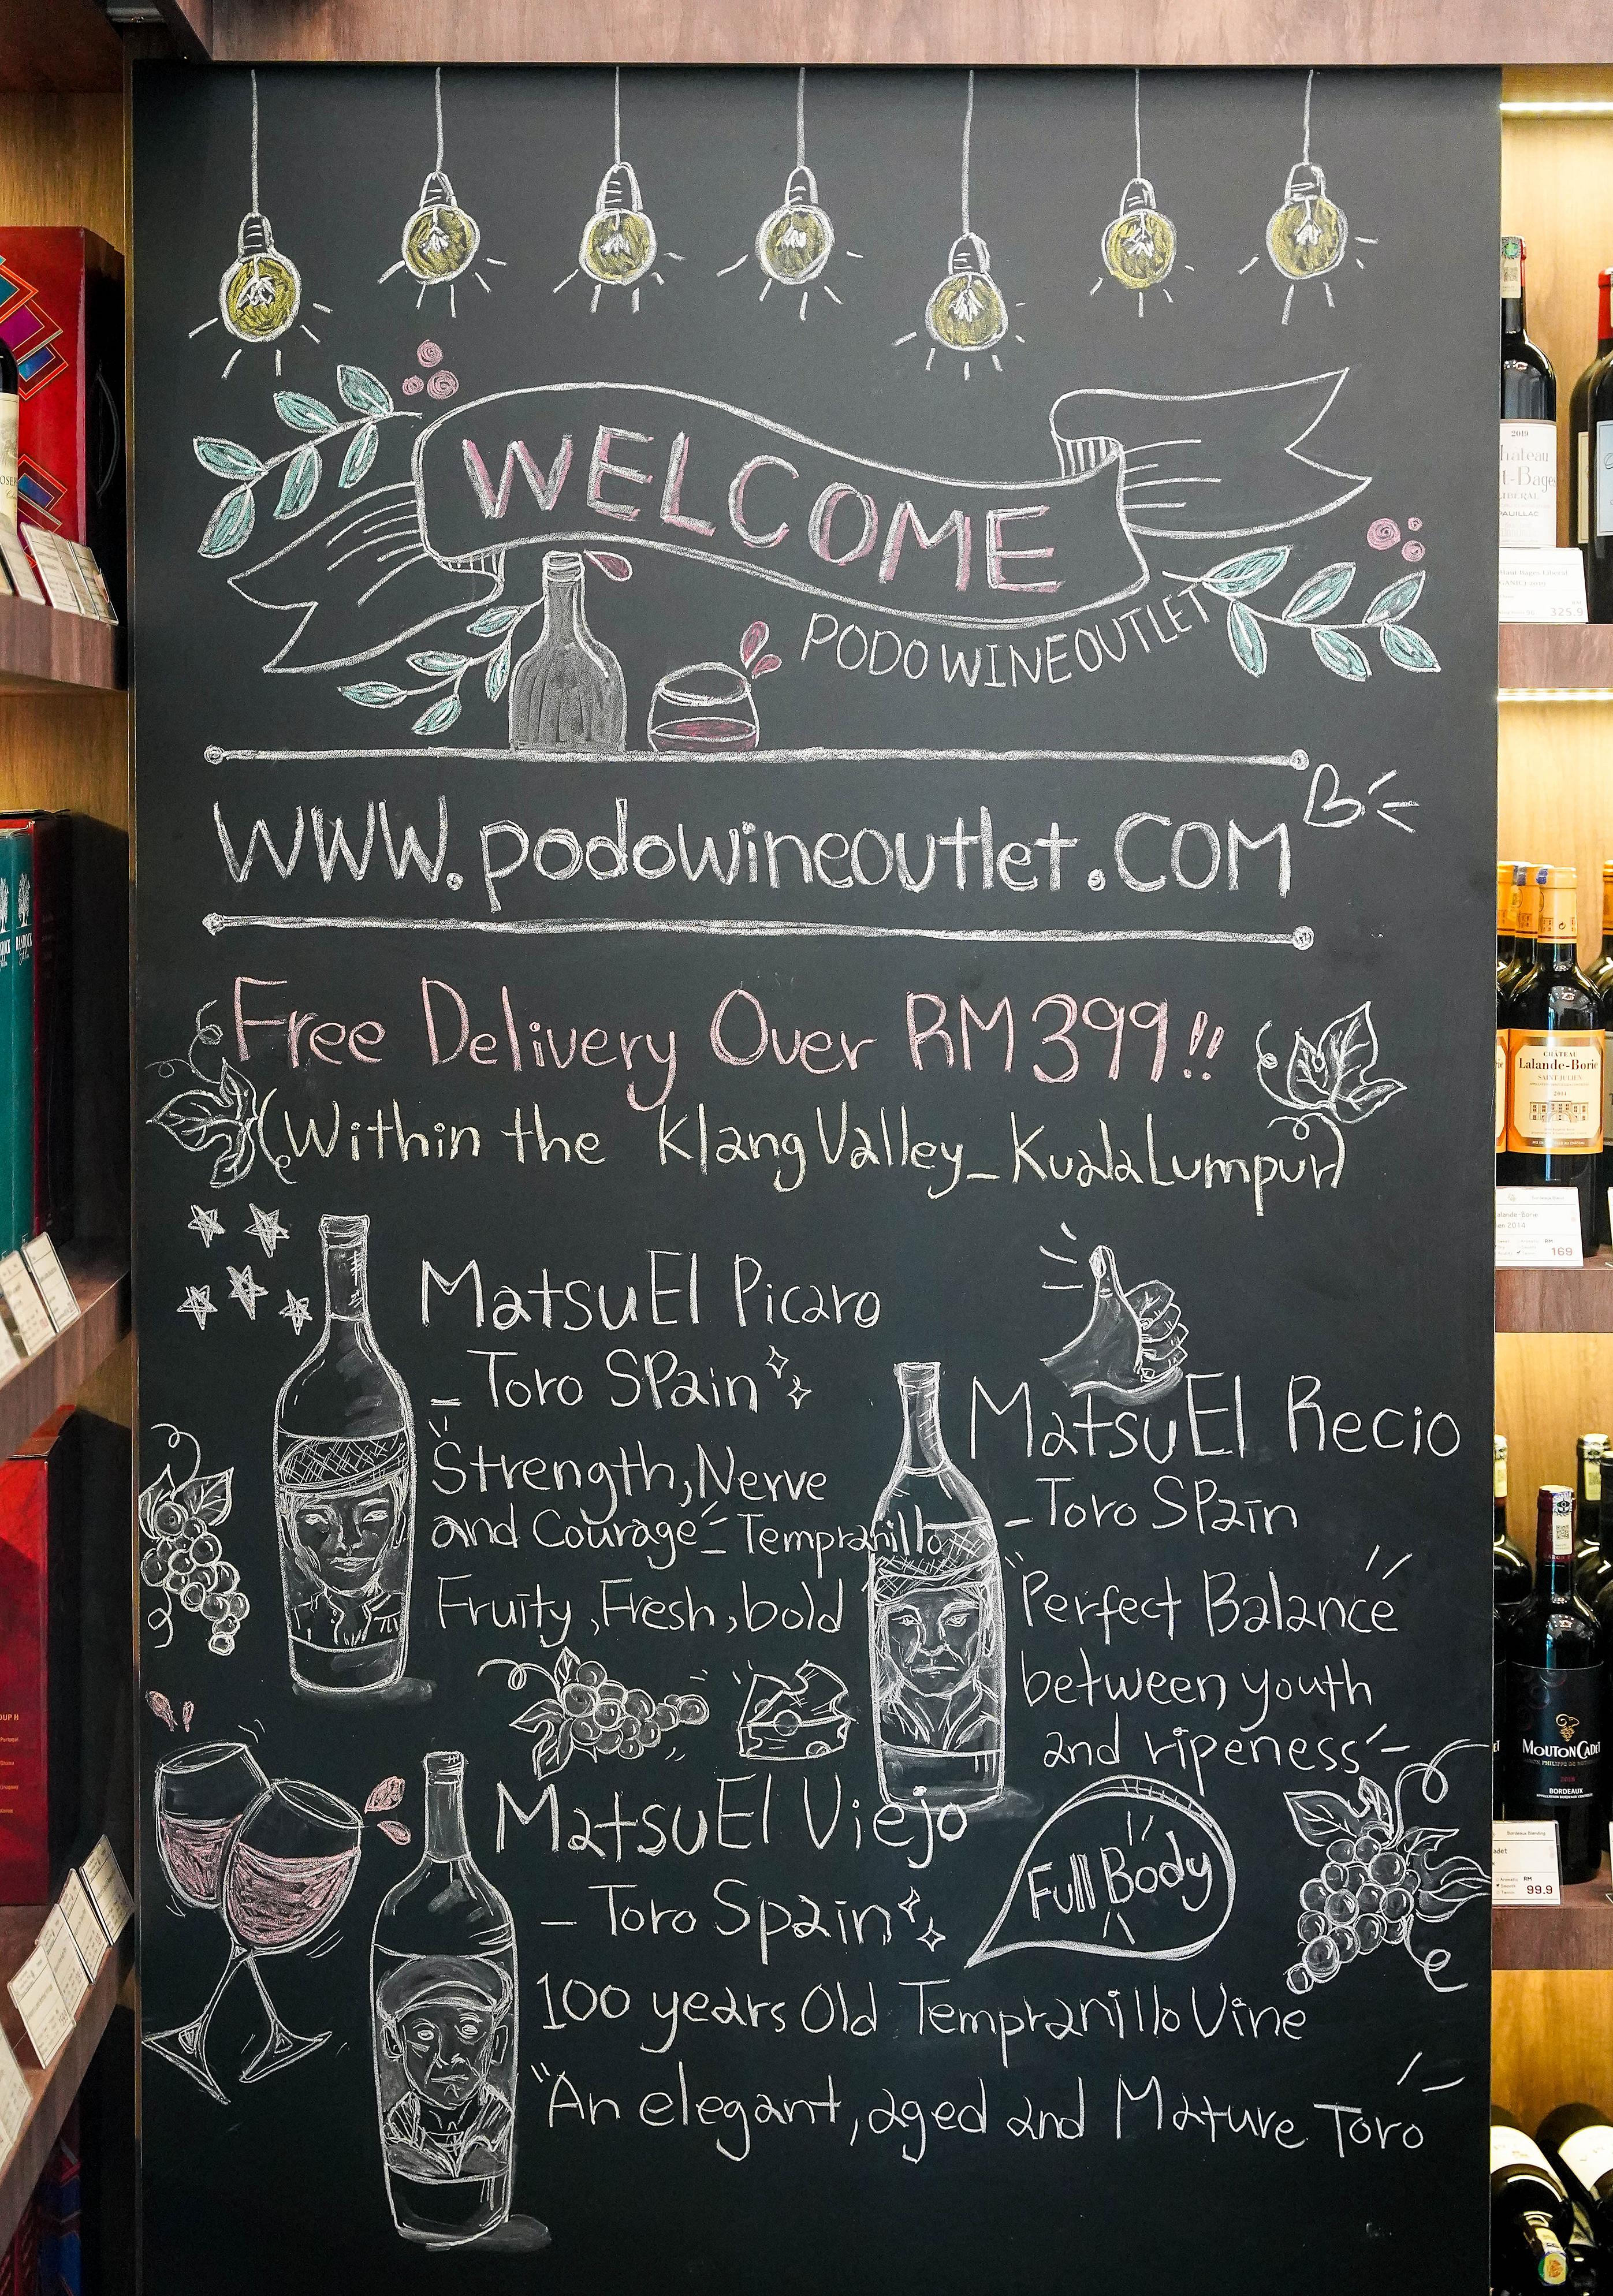 WELCOME
PODO WINEOUTLET
WWW.podowineoutlet.COM
Free Delivery Over RM399!!
(Within the Klang Valley_Kuala Lumpur)
MatsuEl Picaro
_ Toro SPain
"Strength, Nerve
and Courage" _ Tempranillo
Fruity, Fresh, bold
MatsuEl Recio
- Toro SPain
"Perfect Balance"
between youth
and ripeness"
MatsuEl Viejo
- Toro Spain
Full Body
100 years Old Tempranillo Vine
"An elegant, aged and Mature Toro"
2019
Pauillac
325.9
CHÂTEAU
Lalande-Borie
SAINT-JULIEN
2014
alande-Borie
en 2014
RM
169
MOUTON CADET
BORDEAUX
adet
RM
99.9